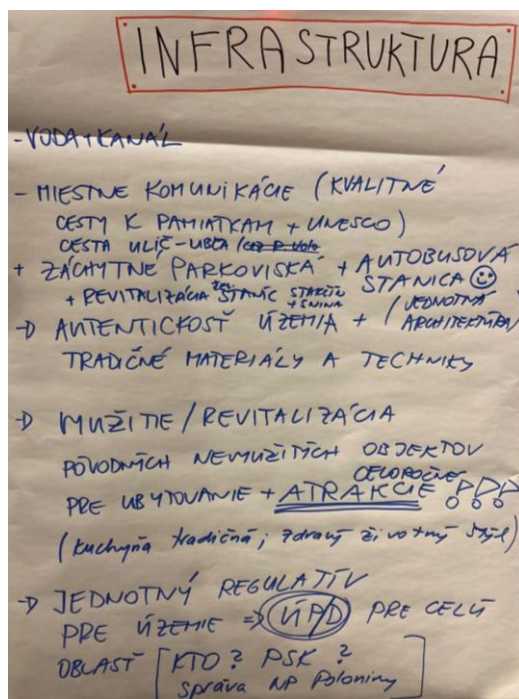 INFRAŠTRUKTURA
- VODA + KANÁL
- MIESTNE KOMUNIKÁCIE (KVALITNÉ
CESTY K PAMIATKAM + UNESCO)
CESTA ULIČ - UBĽA
+ ZÁCHYTNÉ PARKOVISKÁ + AUTOBUSOVÁ
STANICA
+ REVITALIZÁCIA STANÍC STAKČÍN
+ SNINA
→ AUTENTICKOSŤ ÚZEMIA + (JEDNOTNÁ
ARCHITEKTÚRA)
TRADIČNÉ MATERIÁLY A TECHNIKY
→ VYUŽITIE / REVITALIZÁCIA
PÔVODNÝCH NEVYUŽITÝCH OBJEKTOV
CELOROČNE
PRE UBYTOVANIE + ATRAKCIE !!!
(kuchyňa tradičná; zdravý životný štýl)
→ JEDNOTNÝ REGULATÍV
PRE ÚZEMIE ⇒ ÚPD PRE CELÚ
OBLASŤ [KTO? PSK?
Správa NP Poloniny